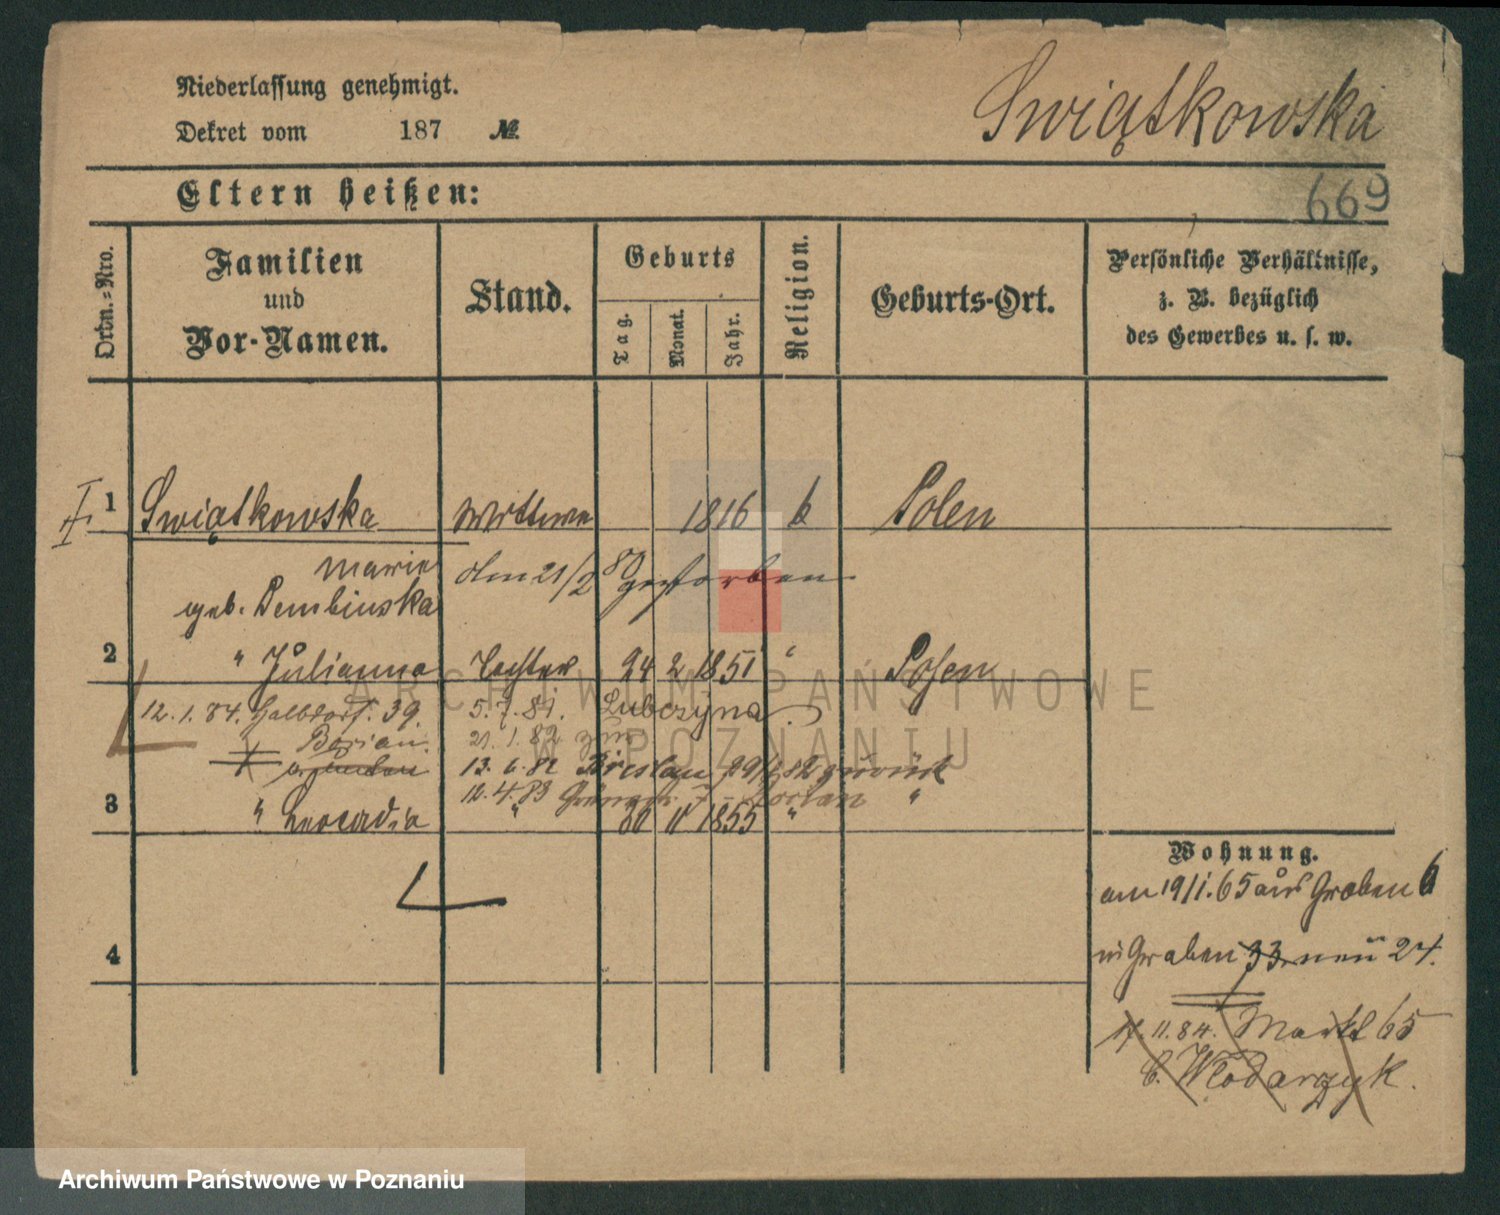 Niederlassung genehmigt.
Dekret vom 187 №
Swiątkowska
Eltern heißen:
669
Ordn.=Nro.
Familien
und
Vor-Namen.
Stand.
Geburts
Tag.
Monat.
Jahr.
Religion.
Geburts-Ort.
Persönliche Verhältnisse,
z. B. bezüglich
des Gewerbes u. s. w.
I 1 Swiątkowska Wittwe 1816 k Polen
Marie am 21/2 80 gestorben
geb. Dembinska
2 " Julianna Tochter 24 2 1851 " Posen
12. 1. 84. Halbdorf. 39. 5. 7. 81. Lubczyna
21. 1. 82
13. 6. 82 Breslau zurück
12. 4. 83
3 " Leocadia " 1855 " "
4
Wohnung.
am 19/1. 65 aus Graben 6
in Graben 33. neu 24.
11. 84. Markt 65
b. Wlodarzyk.
ARCHIWUM PAŃSTWOWE
W POZNANIU
Archiwum Państwowe w Poznaniu